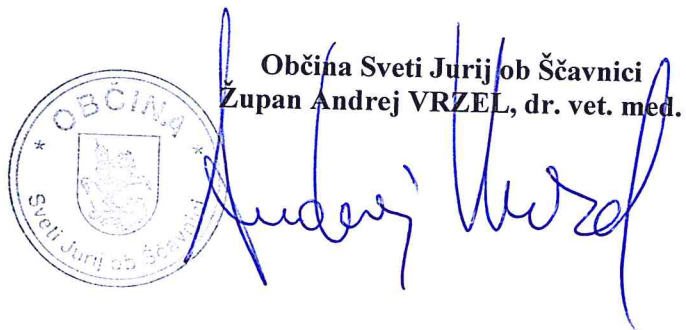 Občina Sveti Jurij ob Ščavnici
Župan Andrej VRZEL, dr. vet. med.
* OBČINA *
Sveti Jurij ob Ščavnici
Andrej Vrzel